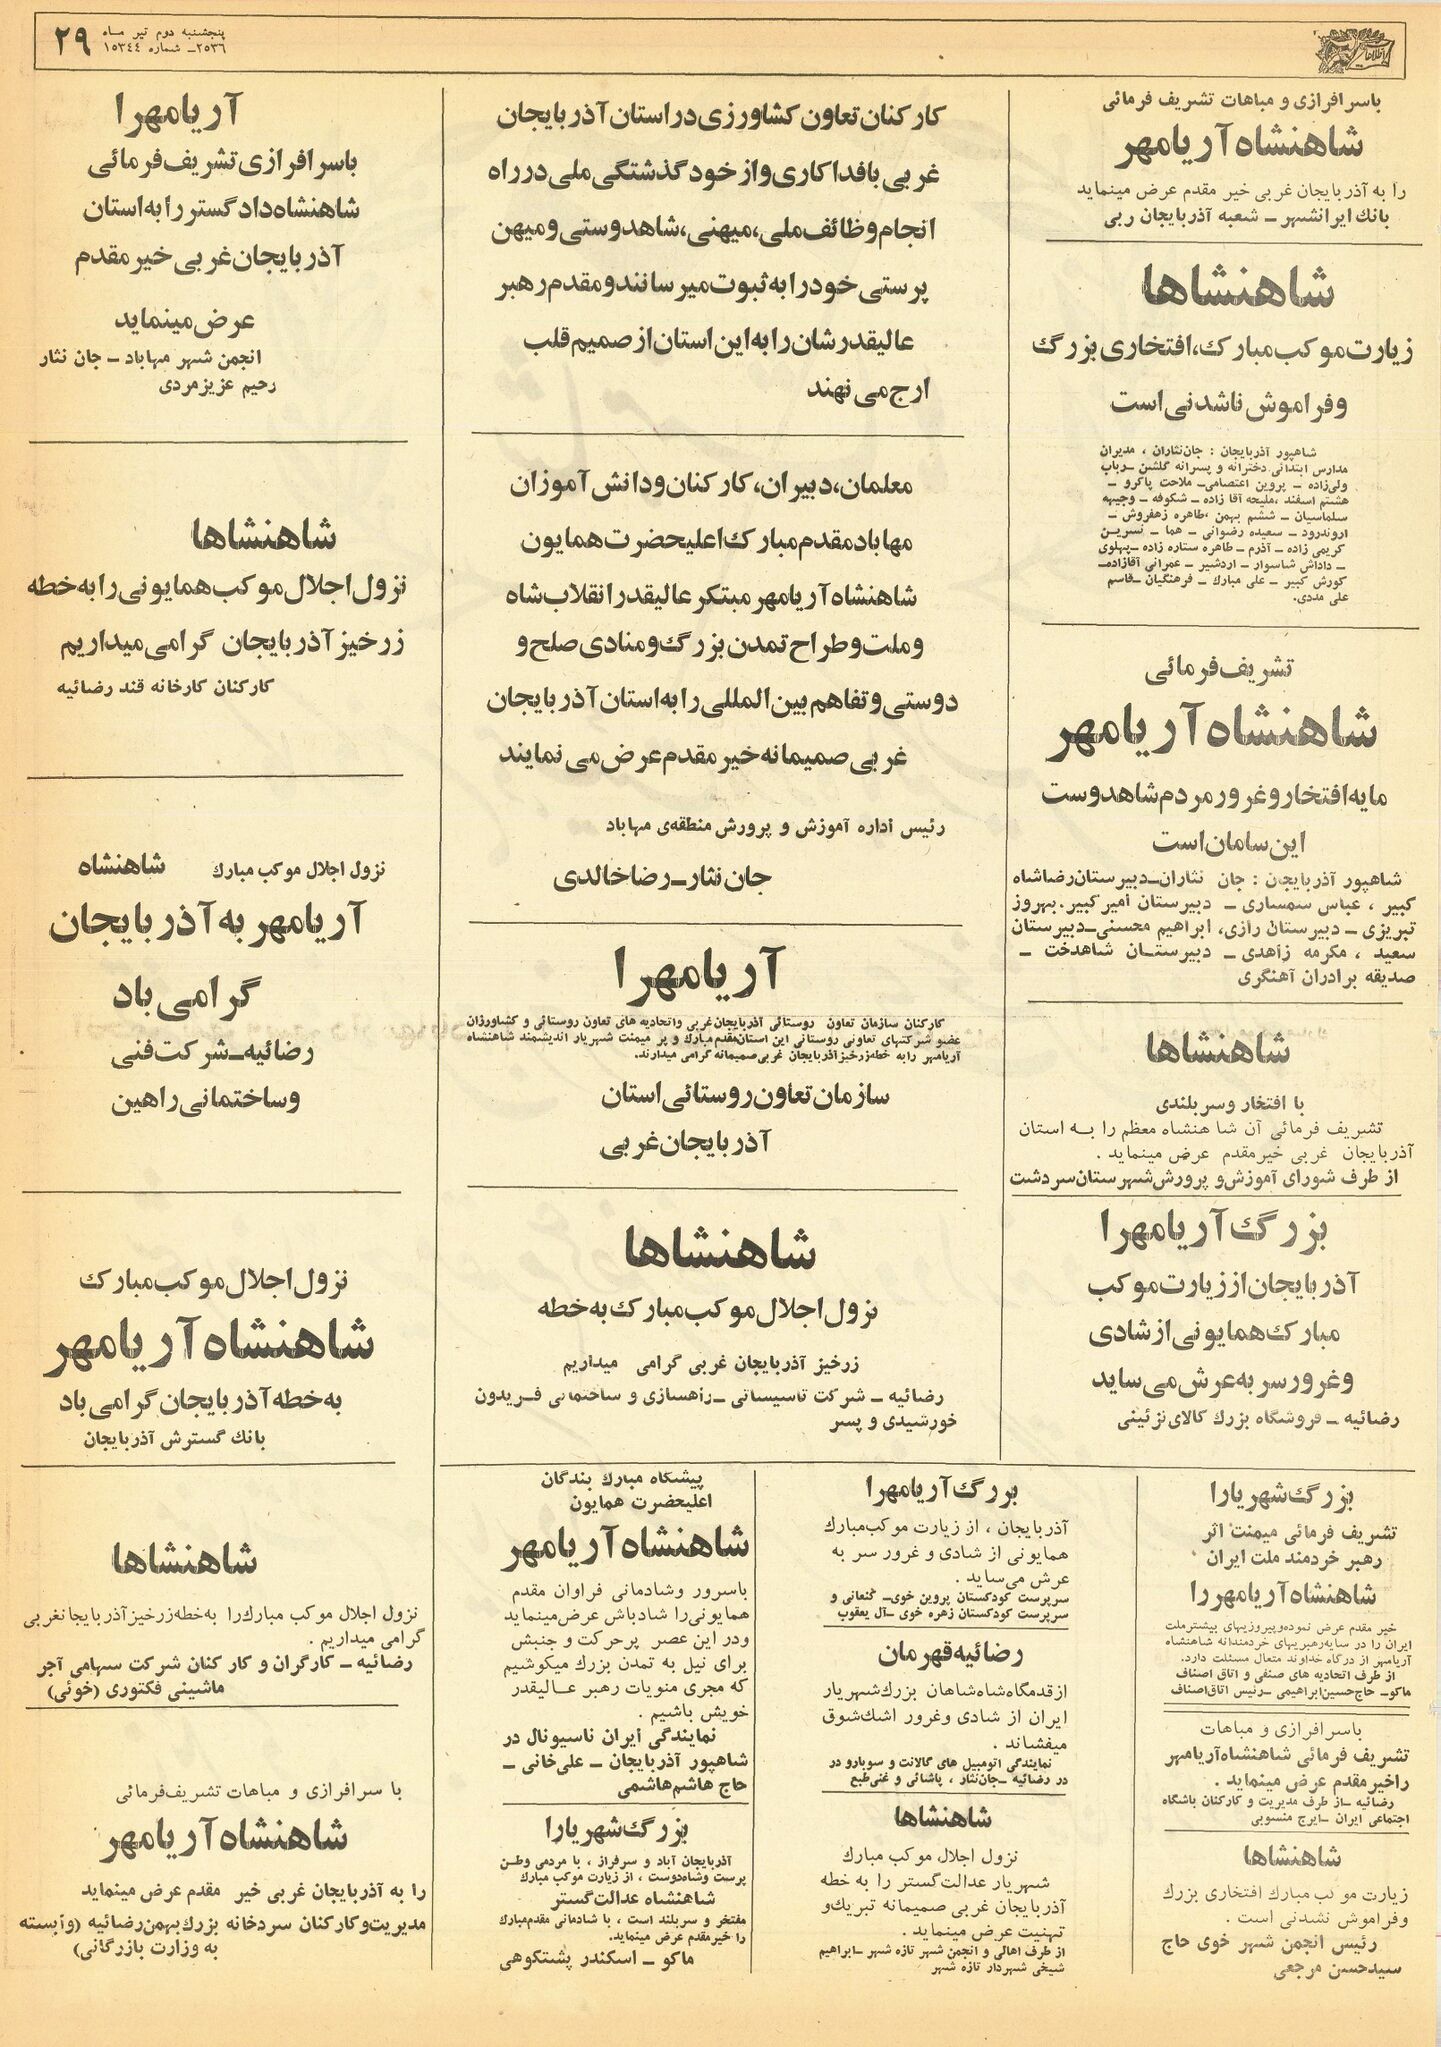 پنجشنبه دوم تیر ماه
۲۵۳۶ـ شماره ۱۵۳۴۴
۲۹
اطلاعات
باسرافرازی و مباهات تشریف فرمائی
شاهنشاه آریامهر
را به آذربایجان غربی خیر مقدم عرض مینماید
بانك ایرانشهر ـ شعبه آذربایجان ربی
شاهنشاها
زیارت موکب مبارك، افتخاری بزرگ
و فراموش ناشدنی است
شاهپور آذربایجان : جان‌نثاران ، مدیران
مدارس ابتدائی دخترانه و پسرانه گلشن ـ رباب
ولی‌زاده ـ پروین اعتصامی‌ـ ملاحت پاکرو ـ
هشتم اسفند ،ملیحه آقا زاده ـ شکوفه ـ وجیهه
سلماسیان ـ ششم بهمن ،طاهره زهفروش ـ
اروندرود ـ سعیده رضوانی ـ هما ـ نسرین
کریمی زاده ـ آذرم ـ طاهره ستاره زاده ـ پهلوی
ـ داداش شاسوار ـ اردشیر ـ عمرانی آقازاده‌ـ
کورش کبیر ـ علی مبارك ـ فرهنگیان ـ قاسم
علی مددی.
تشریف فرمائی
شاهنشاه آریامهر
مایه افتخار و غرور مردم شاهدوست
این سامان است
شاهپور آذربایجان : جان نثاران‌ـ دبیرستان رضاشاه
کبیر ، عباس سمساری ـ دبیرستان امیرکبیر، بهروز
تبریزی ـ دبیرستان رازی، ابراهیم محسنی‌ـ دبیرستان
سعید ، مکرمه زاهدی ـ دبیرستان شاهدخت ـ
صدیقه برادران آهنگری
شاهنشاها
با افتخار وسربلندی
تشریف فرمائی آن شاهنشاه معظم را به استان
آذربایجان غربی خیرمقدم عرض مینماید .
از طرف شورای آموزش‌و پرورش‌شهرستان سردشت
بزرگ آریامهرا
آذربایجان از زیارت موکب
مبارك همایونی از شادی
و غرور سر به عرش می‌ساید
رضائیه ـ فروشگاه بزرك کالای تزئینی
کارکنان تعاون کشاورزی در استان آذربایجان
غربی با فداکاری و از خود گذشتگی ملی در راه
انجام وظائف ملی، میهنی، شاهدوستی و میهن
پرستی خود را به ثبوت میرسانند و مقدم رهبر
عالیقدرشان را به این استان از صمیم قلب
ارج می نهند
معلمان، دبیران، کارکنان و دانش آموزان
مهاباد مقدم مبارك اعلیحضرت همایون
شاهنشاه آریامهر مبتکر عالیقدر انقلاب شاه
و ملت و طراح تمدن بزرگ و منادی صلح و
دوستی و تفاهم بین المللی را به استان آذربایجان
غربی صمیمانه خیر مقدم عرض می نمایند
رئیس اداره آموزش و پرورش منطقه‌ی مهاباد
جان نثار ـ رضا خالدی
آریامهرا
کارکنان سازمان تعاون روستائی آذربایجان غربی واتحادیه های تعاون روستائی و کشاورزان
عضو شرکتهای تعاونی روستائی این استان‌مقدم مبارك و پر میمنت شهریار اندیشمند شاهنشاه
آریامهر را به خطه‌زرخیز آذربایجان غربی صمیمانه گرامی میدارند.
سازمان تعاون روستائی استان
آذربایجان غربی
شاهنشاها
نزول اجلال موکب مبارك به خطه
زرخیز آذربایجان غربی گرامی میداریم
رضائیه ـ شرکت تاسیساتی ـ راهسازی و ساختمانی فریدون
خورشیدی و پسر
آریامهرا
باسرافرازی تشریف فرمائی
شاهنشاه دادگستر را به استان
آذربایجان غربی خیر مقدم
عرض مینماید
انجمن شهر مهاباد ـ جان نثار
رحیم عزیزمردی
شاهنشاها
نزول اجلال موکب همایونی را به خطه
زرخیز آذربایجان گرامی میداریم
کارکنان کارخانه قند رضائیه
نزول اجلال موکب مبارك شاهنشاه
آریامهر به آذربایجان
گرامی باد
رضائیه ـ شرکت فنی
و ساختمانی راهین
نزول اجلال موکب مبارك
شاهنشاه آریامهر
به خطه آذربایجان گرامی باد
بانك گسترش آذربایجان
شاهنشاها
نزول اجلال موکب مبارك‌را به‌خطه‌زرخیز آذربایجانغربی
گرامی میداریم .
رضائیه ـ کارگران و کارکنان شرکت سهامی آجر
ماشینی فکتوری (خوئی)
با سرافرازی و مباهات تشریف‌فرمائی
شاهنشاه آریامهر
را به آذربایجان غربی خیر مقدم عرض مینماید
مدیریت‌و کارکنان سردخانه بزرك بهمن رضائیه (وابسته
به وزارت بازرگانی)
بزرگ شهریارا
تشریف فرمائی میمنت اثر
رهبر خردمند ملت ایران
شاهنشاه آریامهر را
خیر مقدم عرض نموده‌وپیروزیهای بیشترملت
ایران را در سایه‌رهبریهای خردمندانه شاهنشاه
آریامهر از درگاه خداوند متعال مسئلت دارد.
از طرف اتحادیه های صنفی و اتاق اصناف
ماکو‌ـ حاج‌حسین‌ابراهیمی ـ رئیس اتاق‌اصناف
باسرافرازی و مباهات
تشریف فرمائی شاهنشاه‌آریامهر
راخیر مقدم عرض مینماید .
رضائیه ـ از طرف مدیریت و کارکنان باشگاه
اجتماعی ایران ـ ایرج منسوبی
شاهنشاها
زیارت موکب مبارك افتخاری بزرك
و فراموش نشدنی است .
رئیس انجمن شهر خوی حاج
سیدحسن مرجعی
بزرگ آریامهرا
آذربایجان ، از زیارت موکب‌مبارك
همایونی از شادی و غرور سر به
عرش می‌ساید .
سرپرست کودکستان پروین خوی‌ـ کنعانی و
سرپرست کودکستان زهره خوی ـ آل یعقوب
رضائیه قهرمان
از قدمگاه شاه‌شاهان بزرك‌شهریار
ایران از شادی وغرور اشك‌شوق
میفشاند .
نمایندگی اتومبیل های گالانت و سوبارو در
در رضائیه ـ جان‌نثار ، پاشائی و غنی‌طبع
شاهنشاها
نزول اجلال موکب مبارك
شهریار عدالت‌گستر را به خطه
آذربایجان غربی صمیمانه تبریك‌و
تهنیت عرض مینماید .
از طرف اهالی و انجمن شهر تازه شهر ـ ابراهیم
شیخی شهردار تازه شهر
پیشگاه مبارك بندگان
اعلیحضرت همایون
شاهنشاه آریامهر
باسرور وشادمانی فراوان مقدم
همایونی‌را شادباش عرض‌مینماید
ودر این عصر پرحرکت و جنبش
برای نیل به تمدن بزرك میکوشیم
که مجری منویات رهبر عالیقدر
خویش باشیم .
نمایندگی ایران ناسیونال در
شاهپور آذربایجان ـ علی‌خانی ـ
حاج هاشم‌هاشمی
بزرگ شهریارا
آذربایجان آباد و سرفراز ، با مردمی وطن
پرست وشاه‌دوست ، از زیارت موکب مبارك
شاهنشاه عدالت‌گستر
مفتخر و سربلند است ، با شادمانی مقدم‌مبارك
را خیرمقدم عرض مینماید.
ماکو ـ اسکندر پشتکوهی